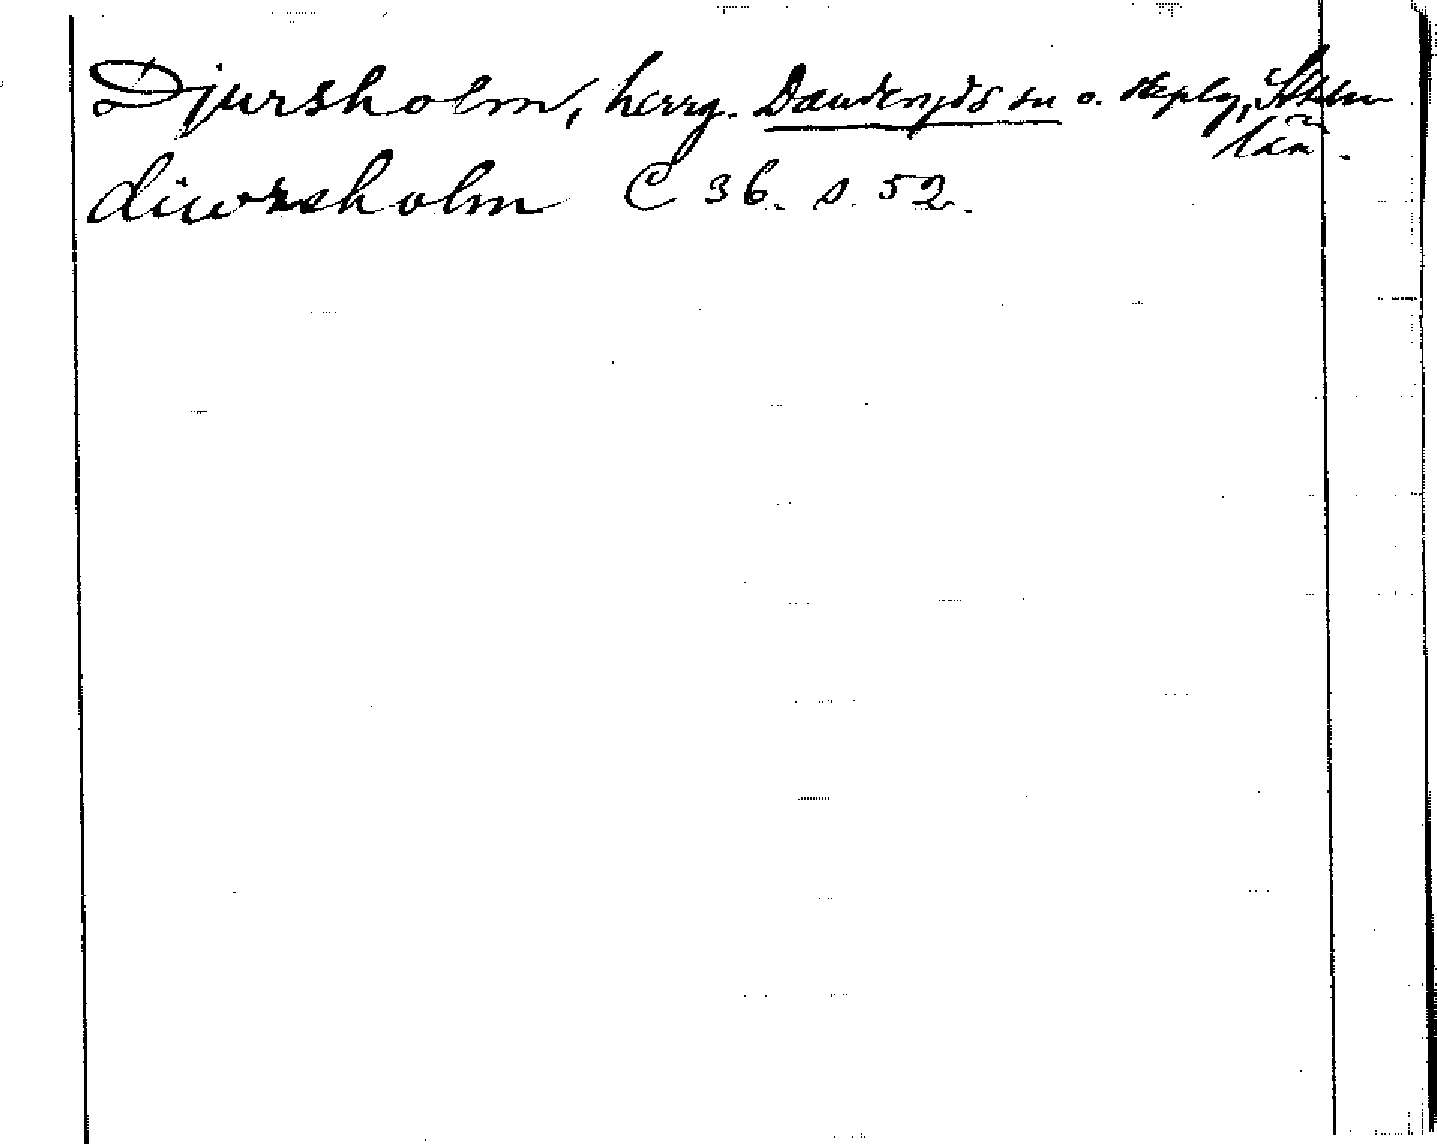 Djursholm, herrg. Danderyds sn o. skeplg, Sthlm
län.
diwrsholm C 36. s. 52.